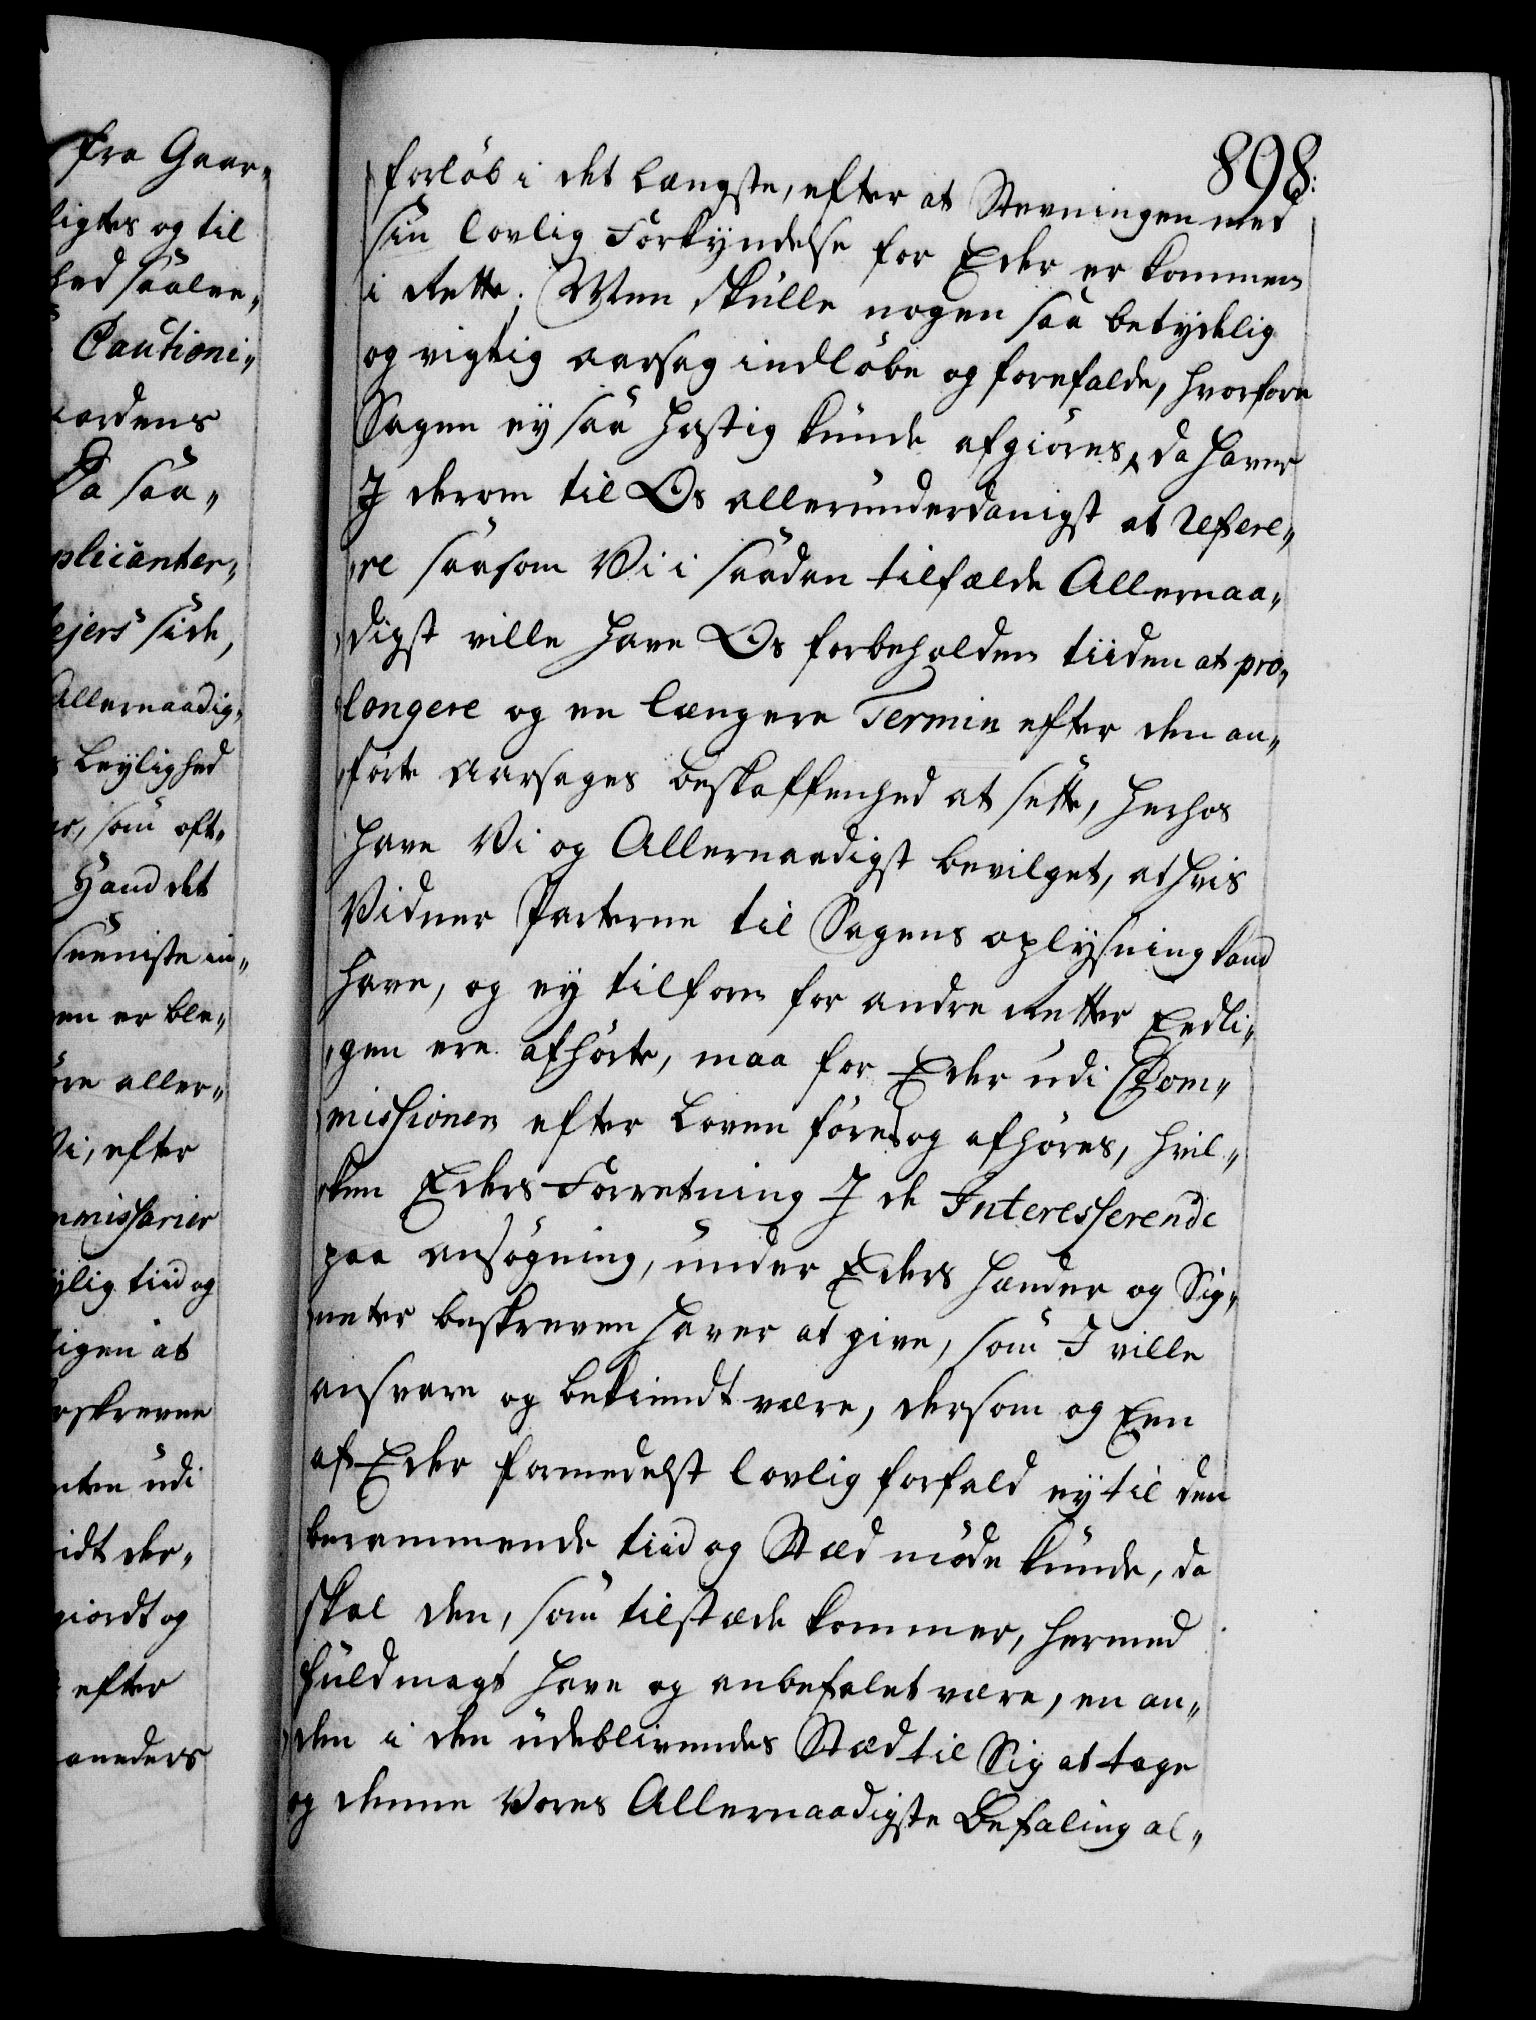 fra Gaar„
ligtes og til
hed saalee„
Cautioni„
aardens
Da saa„
plicanter„
ejers side,
Allernaadig„
s Leylighed
er, som oft„
Hand det
seeniste in„
en er ble„
öre aller„
Vi, efter
mmissarier
ylig tiid og
ligen at
beskrevne
nten udi
vidt der„
giordt og
efter
aaneders
898.
forlöb i det Længste, efter at Stevningen med
sin lovlig Forkyndelse for Eder er kommen
i Rette; Men skulle nogen saa betydelig
og vigtig aarsag indlöbe og forefalde, hvorfore
Sagen ey saa hastig kunde afgiöres, da haver
I derom til Os allerunderdanigst at Refere„
„re saasom Vi i saadan tilfælde Allernaa„
„digst ville have Os forbeholden tiiden at pro„
„longere og en længere Termin efter den an„
„förte Aarsages beskaffenhed at sette, herhos
have Vi og Allernaadigst bevilget, at hvis
Vidner Parterne til Sagens oplysning kand
have, og ey tilforn for andre Retter Eedli„
„gen ere afhörte, maa for Eder udi Com„
„missionen efter Loven föres og afhöres, hvil„
„ken Eders Forretning I de Interesserende
paa ansögning, under Eders hænder og Sig„
„neter beskreven haver at give, som I ville
ansvare og bekiendt være, dersom og Een
af Eder formedelst lovlig forfald ey til den
berammende tiid og Stæd möde kunde, da
skal den, som tilstæde kommer, hermed
fuldmagt have og anbefalet være, en an„
„den i den udeblivendes Stæd til Sig at tage
og denne Vores Allernaadigste Befaling al„